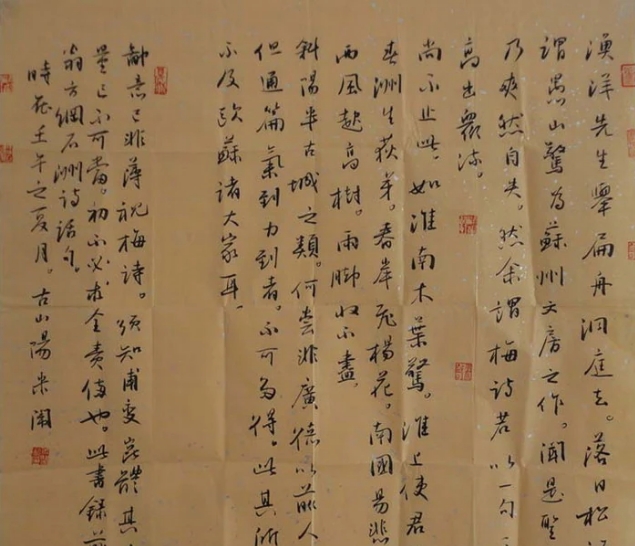 漁洋先生舉扁舟洞庭去。落日松
謂愚山驚為蘇州文房之作。聞是聖
乃爽然自失。然余謂梅詩若以一句
高出眾流。
尚不止此、如淮南木葉驚。淮上使君
春洲生荻芽。春岸飛楊花。南國易悲
西風起高樹。雨脚收不盡
斜陽半古城之類。何嘗非廣德以前人
但通篇氣到力到者。不可多得。此其所
不及歐蘇諸大家耳。
鄙意已非薄視梅詩。須知甫變崑體其
量已不可當。初不必求全責備也。此書錄
翁方綱石洲詩話句。
時在壬午之夏月。古山陽米閑